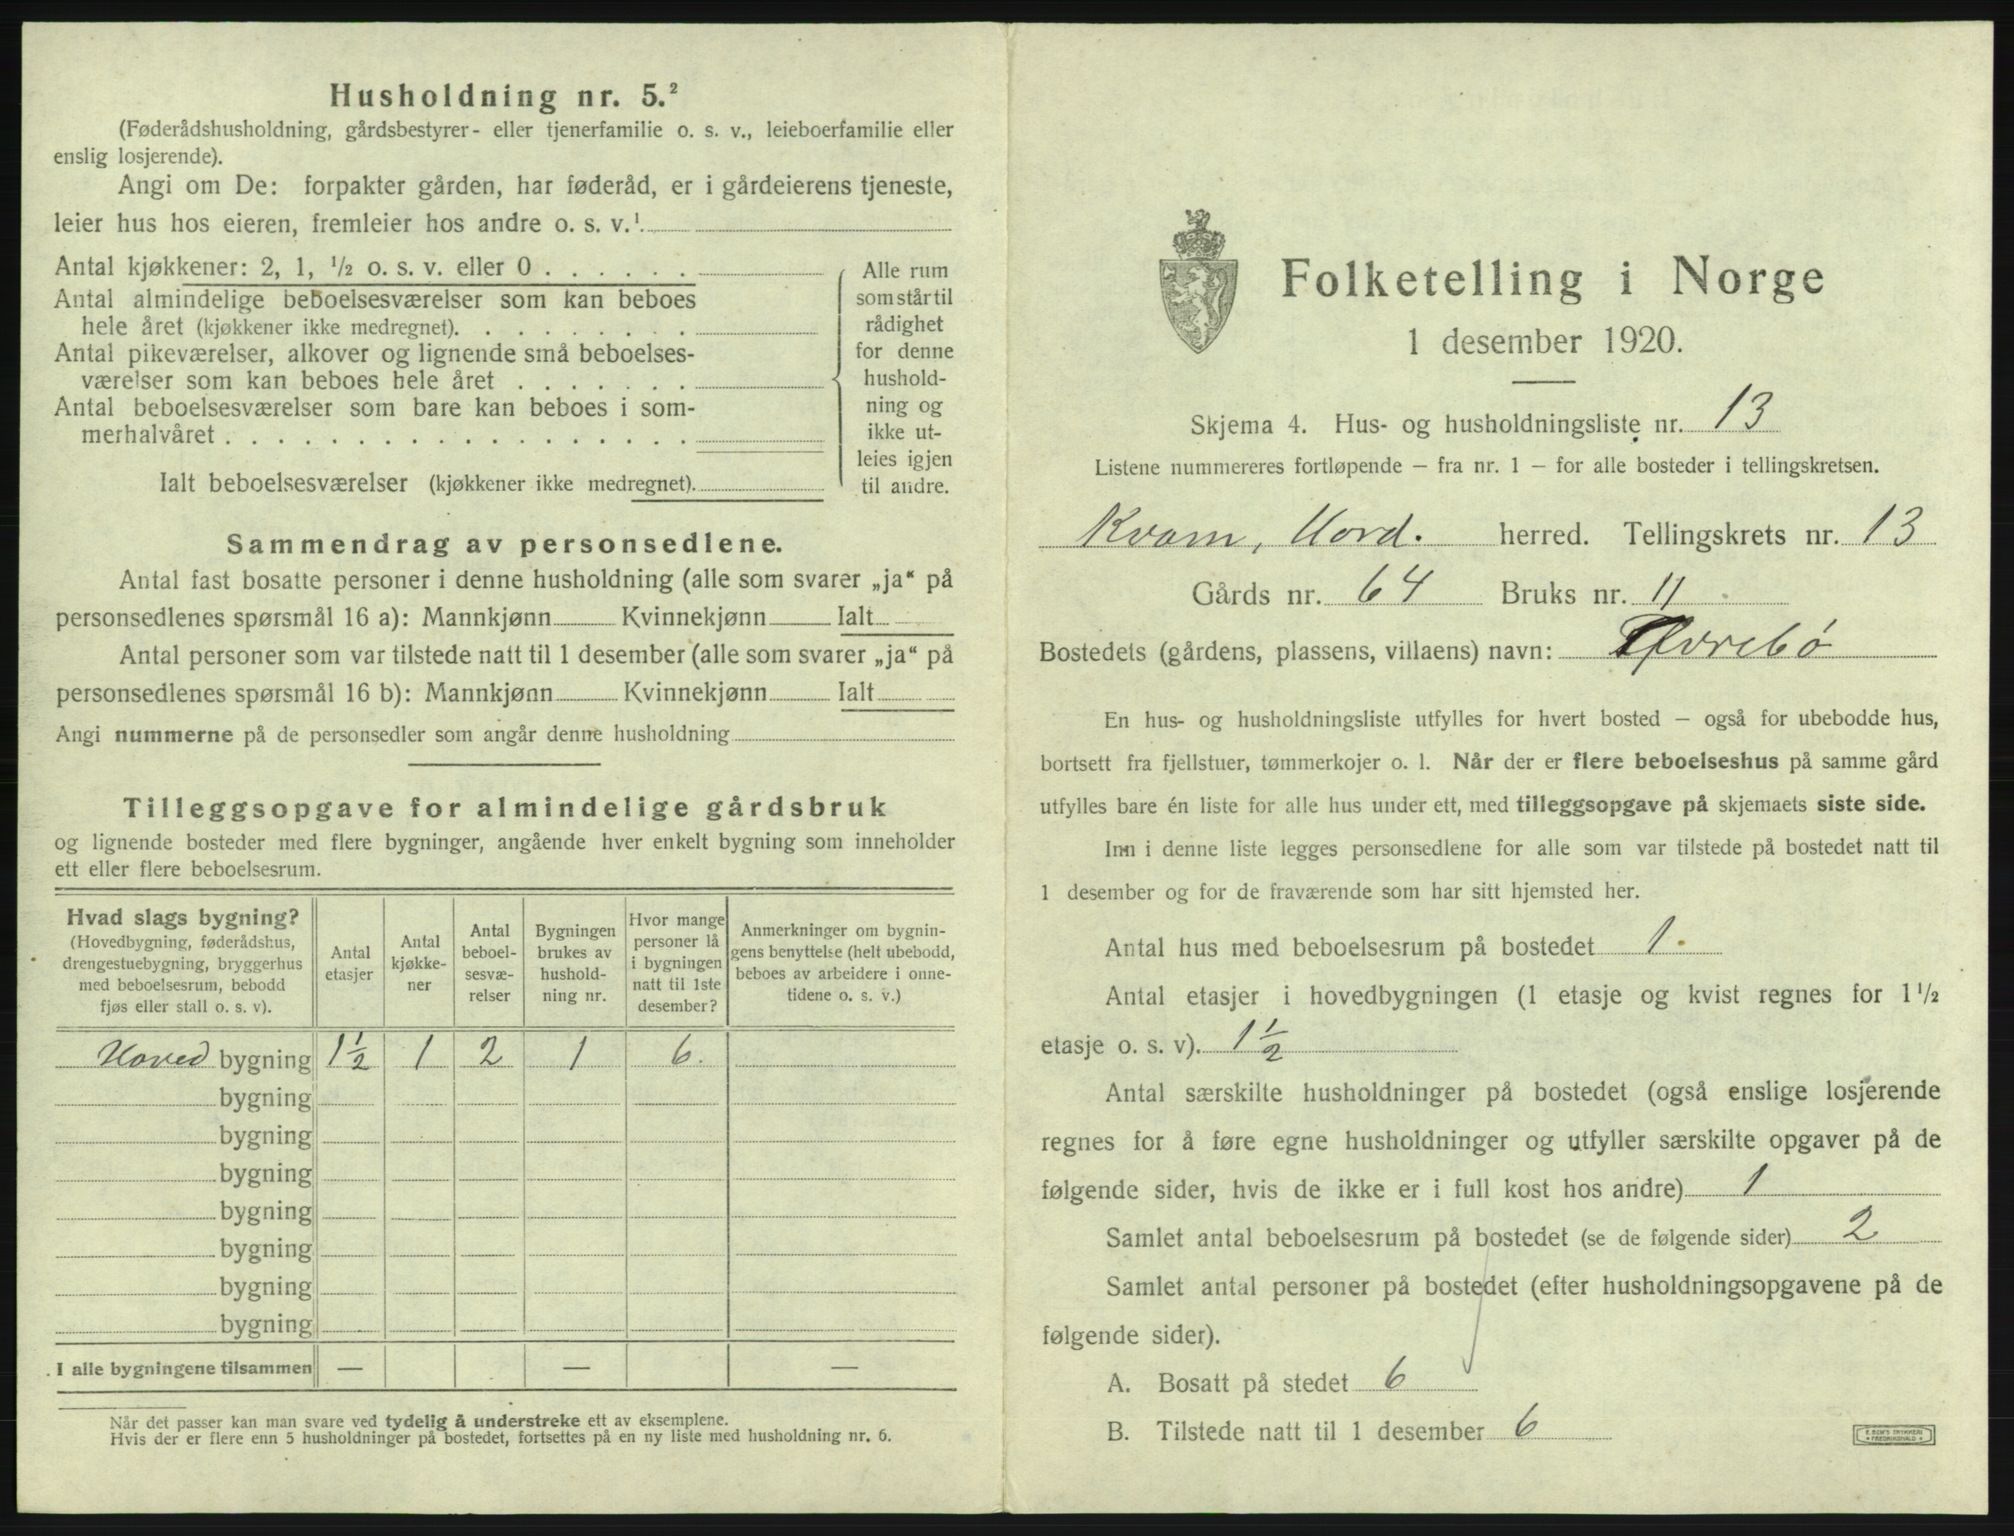 Husholdning nr. 5.²
(Føderådshusholdning, gårdsbestyrer- eller tjenerfamilie o. s. v., leieboerfamilie eller
enslig losjerende).
Angi om De: forpakter gården, har føderåd, er i gårdeierens tjeneste,
leier hus hos eieren, fremleier hos andre o. s. v.¹
Antal kjøkkener: 2, 1, ½ o. s. v. eller 0
Antal almindelige beboelsesværelser som kan beboes
hele året (kjøkkener ikke medregnet).
Antal pikeværelser, alkover og lignende små beboelses-
værelser som kan beboes hele året
Antal beboelsesværelser som bare kan beboes i som-
merhalvåret
Ialt beboelsesværelser (kjøkkener ikke medregnet).
Alle rum
som står til
rådighet
for denne
hushold-
ning og
ikke ut-
leies igjen
til andre.
Sammendrag av personsedlene.
Antal fast bosatte personer i denne husholdning (alle som svarer „ja“ på
personsedlenes spørsmål 16 a): Mannkjønn Kvinnekjønn Ialt
Antal personer som var tilstede natt til 1 desember (alle som svarer „ja“ på
personsedlenes spørsmål 16 b): Mannkjønn Kvinnekjønn Ialt
Angi nummerne på de personsedler som angår denne husholdning
Tilleggsopgave for almindelige gårdsbruk
og lignende bosteder med flere bygninger, angående hver enkelt bygning som inneholder
ett eller flere beboelsesrum.
Hvad slags bygning?
(Hovedbygning, føderådshus,
drengestuebygning, bryggerhus
med beboelsesrum, bebodd
fjøs eller stall o. s. v).
Antal
etasjer
Antal
kjøkke-
ner
Antal
beboel-
sesvæ-
relser
Bygningen
brukes av
hushold-
ning nr.
Hvor mange
personer lå
i bygningen
natt til 1ste
desember?
Anmerkninger om bygnin-
gens benyttelse (helt ubebodd,
beboes av arbeidere i onne-
tidene o. s. v.)
Hoved bygning 1½ 1 2 1 6.
bygning
bygning
bygning
bygning
bygning
bygning
bygning
I alle bygningene tilsammen — — —
Når det passer kan man svare ved tydelig å understreke ett av eksemplene.
Hvis der er flere enn 5 husholdninger på bostedet, fortsettes på en ny liste med husholdning nr. 6.
Folketelling i Norge
1 desember 1920.
Skjema 4. Hus- og husholdningsliste nr. 13
Listene nummereres fortløpende – fra nr. 1 – for alle bosteder i tellingskretsen.
Kvam, Hord. herred. Tellingskrets nr. 13
Gårds nr. 64 Bruks nr. 11
Bostedets (gårdens, plassens, villaens) navn:
En hus- og husholdningsliste utfylles for hvert bosted – også for ubebodde hus,
bortsett fra fjellstuer, tømmerkojer o. l. Når der er flere beboelseshus på samme gård
utfylles bare én liste for alle hus under ett, med tilleggsopgave på skjemaets siste side.
Inn i denne liste legges personsedlene for alle som var tilstede på bostedet natt til
1 desember og for de fraværende som har sitt hjemsted her.
Antal hus med beboelsesrum på bostedet 1.
Antal etasjer i hovedbygningen (1 etasje og kvist regnes for 1½
etasje o. s. v). 1½
Antal særskilte husholdninger på bostedet (også enslige losjerende
regnes for å føre egne husholdninger og utfyller særskilte opgaver på de
følgende sider, hvis de ikke er i full kost hos andre) 1
Samlet antal beboelsesrum på bostedet (se de følgende sider) 2
Samlet antal personer på bostedet (efter husholdningsopgavene på de
følgende sider).
A. Bosatt på stedet 6
B. Tilstede natt til 1 desember 6